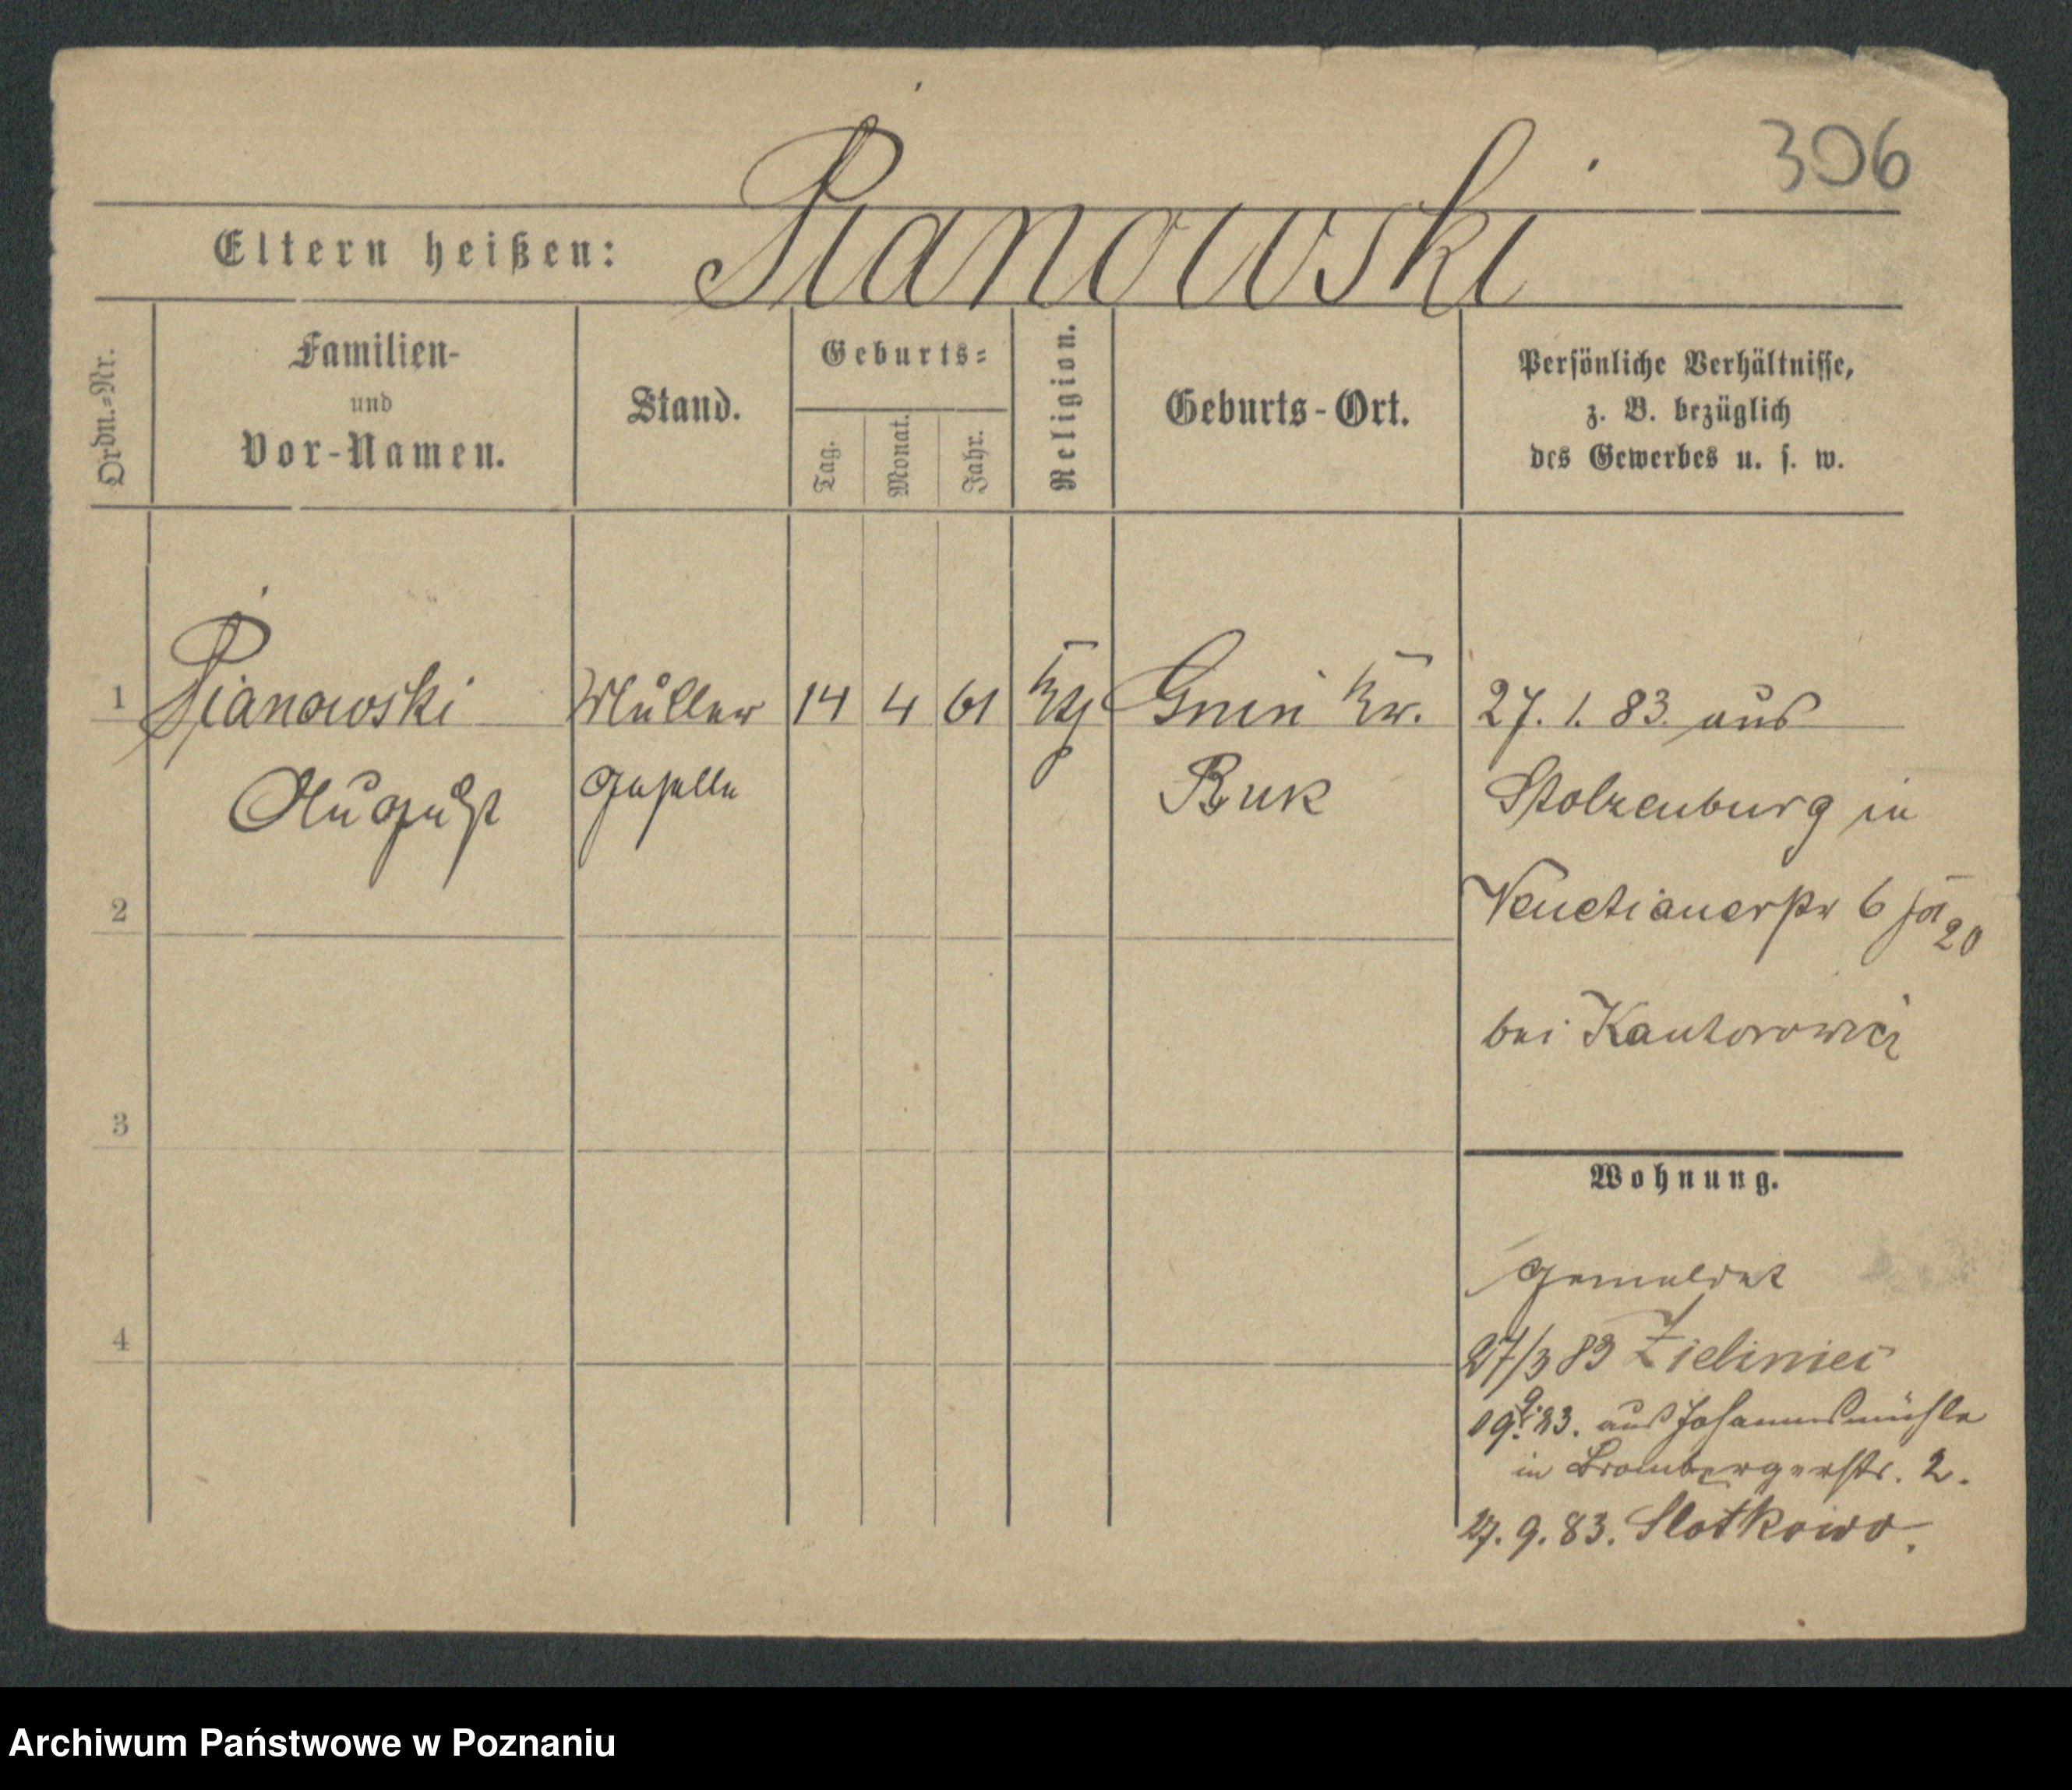 306
Eltern heißen: Pianowski
Ordn.=Nr.
Familien-
und
Vor-Namen.
Stand.
Geburts=
Tag.
Monat.
Jahr.
Religion.
Geburts-Ort.
Persönliche Verhältnisse,
z. B. bezüglich
des Gewerbes u. s. w.
1 Pianowski Müller 14 4 61 Kr. 27. 1. 83. aus
August Geselle Buk Stolzenburg in
2 Venetianerstr 6 20
bei Kantorowicz
3
Wohnung.
gemeldet
4 27/3 83 Zieliniec
19. 9. 83. aus Johannesmühle
in Brombergerstr. 2.
27. 9. 83. Slotkowo.
Archiwum Państwowe w Poznaniu